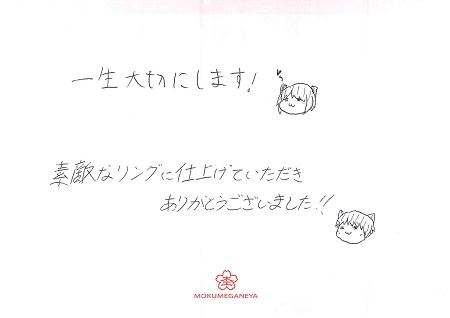 一生大切にします!
素敵なリングに仕上げていただき
ありがとうございました!!
MOKUMEGANEYA